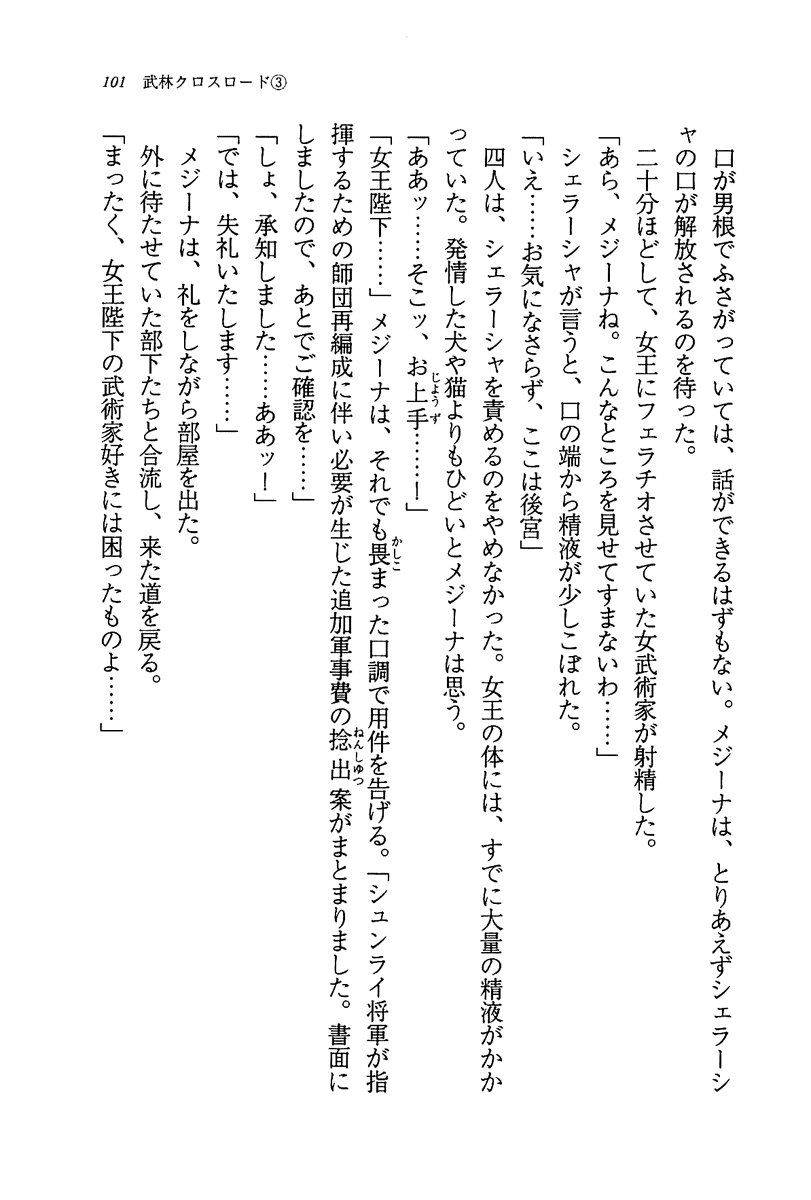 101 武林クロスロード③
口が男根でふさがっていては、話ができるはずもない。メジーナは、とりあえずシェラーシ
ャの口が解放されるのを待った。
二十分ほどして、女王にフェラチオさせていた女武術家が射精した。
「あら、メジーナね。こんなところを見せてすまないわ……」
シェラーシャが言うと、口の端から精液が少しこぼれた。
「いえ……お気になさらず、ここは後宮」
四人は、シェラーシャを責めるのをやめなかった。女王の体には、すでに大量の精液がかか
っていた。発情した犬や猫よりもひどいとメジーナは思う。
「ああッ……そこッ、お上手じようず……！」
「女王陛下……」メジーナは、それでも畏かしこまった口調で用件を告げる。「シュンライ将軍が指
揮するための師団再編成に伴い必要が生じた追加軍事費の捻出ねんしゆつ案がまとまりました。書面に
しましたので、あとでご確認を……」
「しょ、承知しました……ああッ！」
「では、失礼いたします……」
メジーナは、礼をしながら部屋を出た。
外に待たせていた部下たちと合流し、来た道を戻る。
「まったく、女王陛下の武術家好きには困ったものよ……」